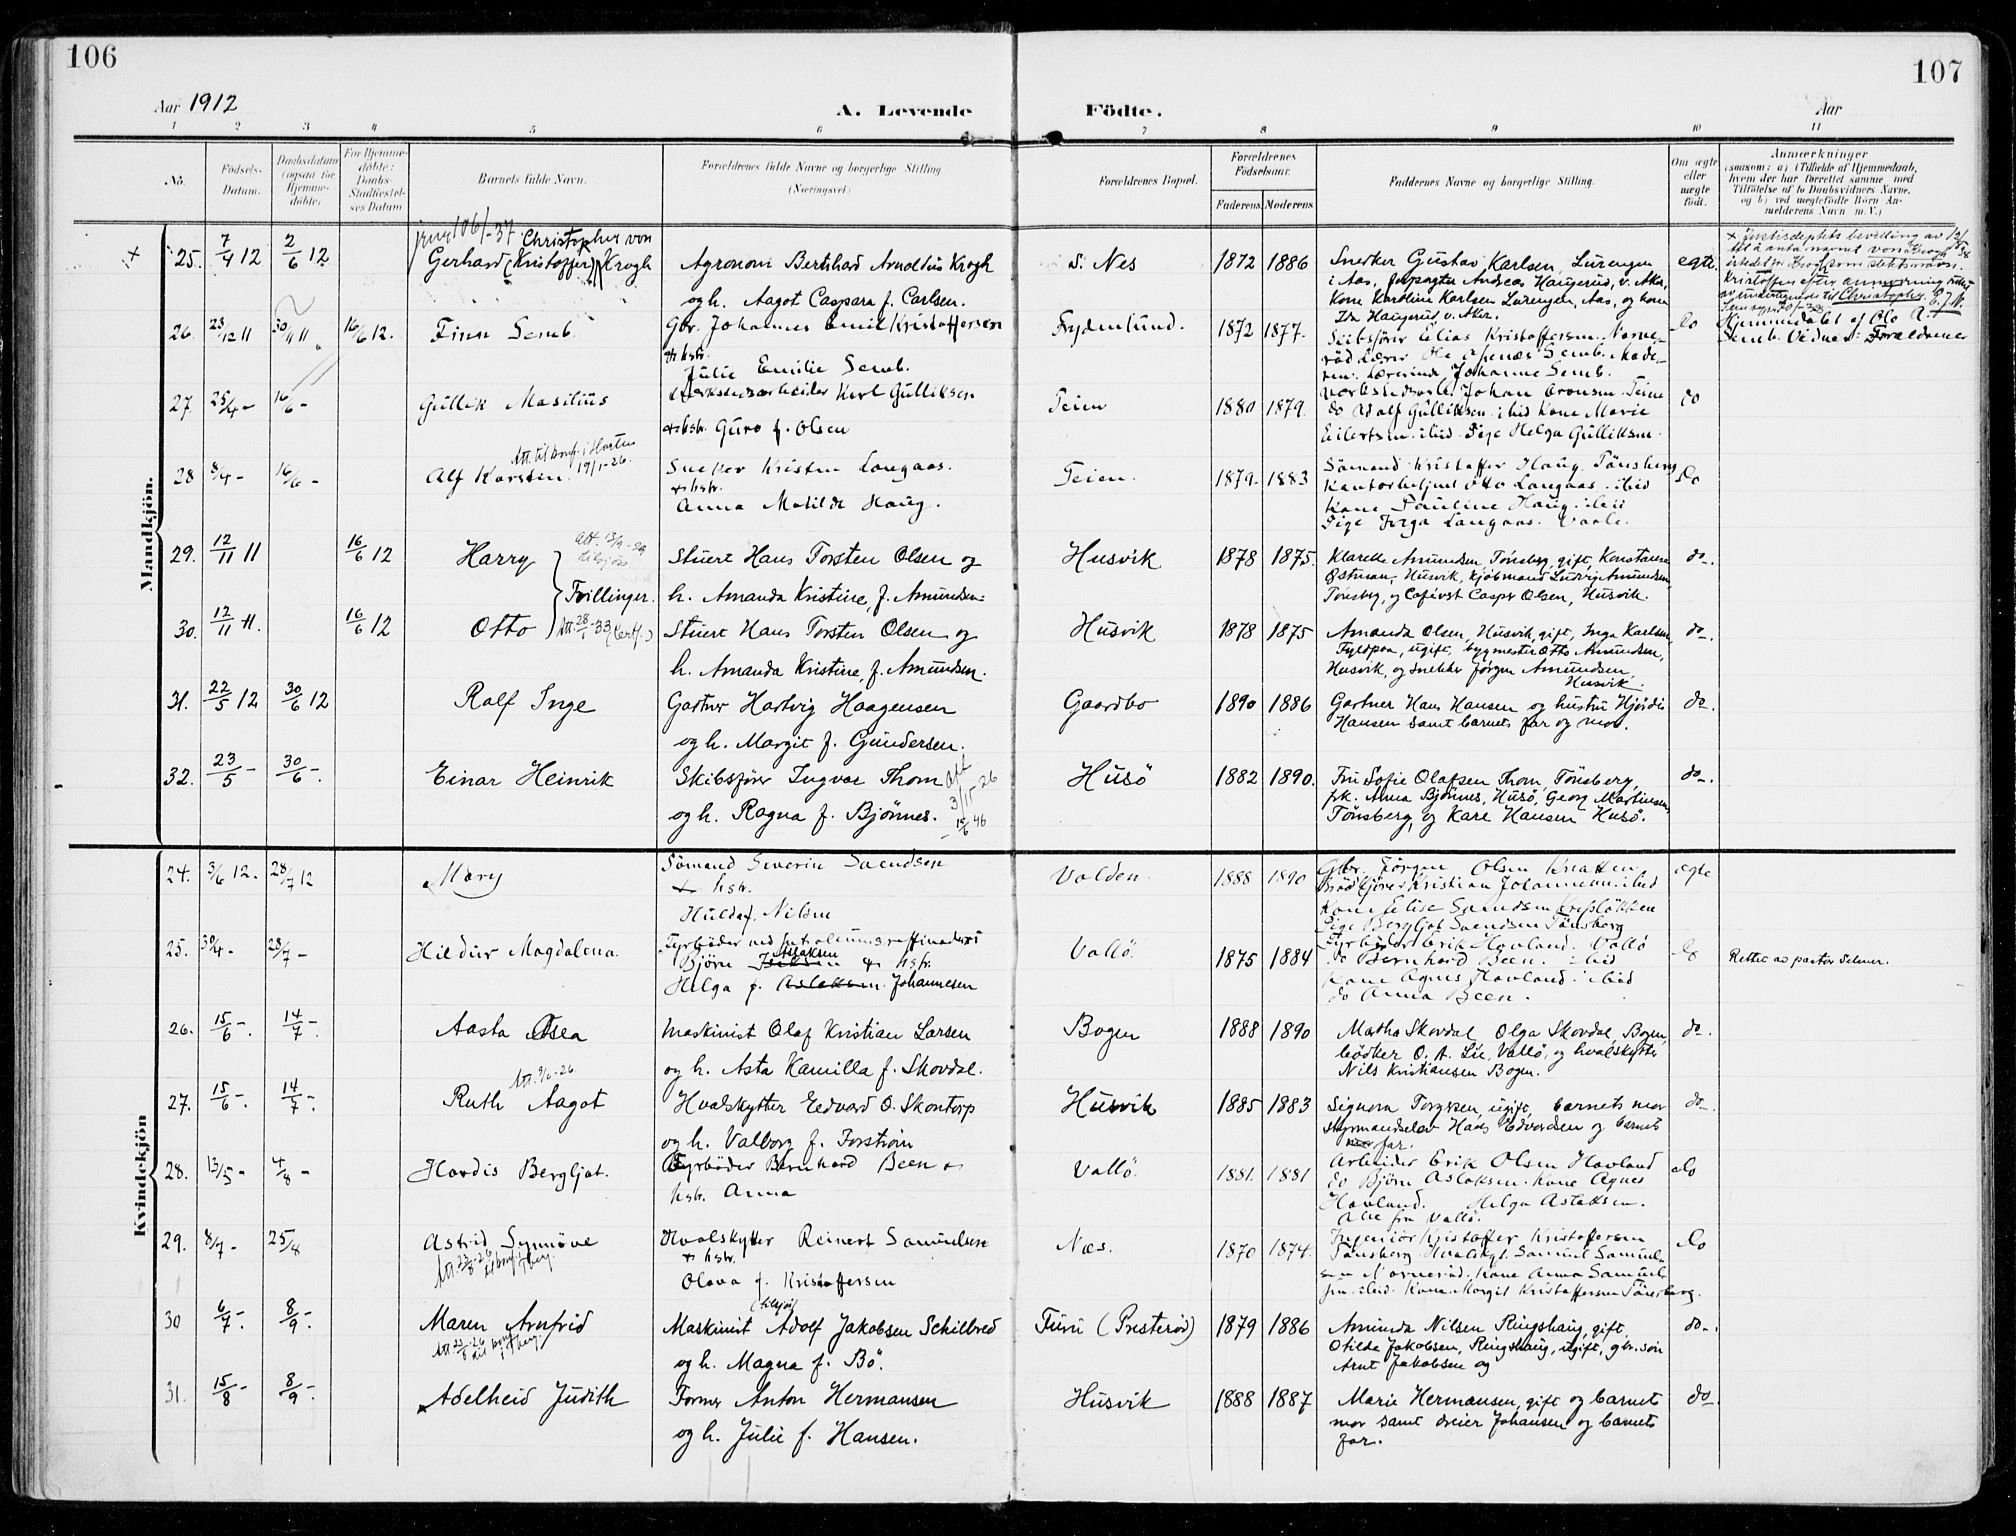 106
107
Aar 1912
A. Levende Födte.
Aar
1 2 3 4 5 6 7 8 9 10 11
No.
Födsels-Datum.
Daabsdatum (ogsaa for Hjemme-döbte)
For Hjemme-döbte: Daabs-Stadfæstel-ses Datum
Barnets fulde Navn.
Forældrenes fulde Navne og borgerlige Stilling (Næringsvei)
Forældrenes Bopæl.
Forældrenes Födselsaar.
Faderens Moderens
Faddernes Navne og borgerlige Stilling.
Om ægte eller uægte födt.
Anmærkninger
(saasom: a) i Tilfælde af Hjemmedaab,
hvem der har forrettet samme med
Tilföielse af to Daabsvidners Navne,
og b) ved uægtefödte Börn An-
melderens Navn m. V.)
Mandkjön.
+ 25. 7/4 12 2/6 12
106/-37 Christopher von
Gerhard (Kristoffer) Krogh
Agronom Bernhard Arnoldus Krogh
og h. Aagot Caspara f. Carlsen.
S. Nes 1872 1886
Snedker Gustav Karlsen, Lurengen
i Aas, forpagter Andreas Haugerud, v. Aker,
Kone Karoline Karlsen Lurengen, Aas, og kone
Ida Haugerud v. Aker.
egte.
+ Justisdeptets bevilling av
til å anta navnet von Krogh
Kristoffer efter anmodning rettet
av undertegnede til Christopher. E.J.N.
26. 23/12 11 30/4 11 16/6 12.
Finn Semb
Gbr. Johannes Emil Kristoffersen
+ hstr.
Julie Emilie Semb.
Frydenlund. 1872 1877.
Skibsfører Elias Kristoffersen. Norne-
röd Lærer Ole Semb.
Lærerinde Johanne Semb.
do
Hjemmedöbt af Ole A.
Semb. Vidner: Forældrene
27 25/4 - 16/6 -
Gullik Masilius
Verkstedsarbeider Karl Gulliksen
+ hstr. Guro f. Olsen
Teien 1880 1879.
Verkstedsarb. Johan Aronsen Teine
do Adolf Gulliksen ibid Kone Marie
Eilertsen. ibid Pige Helga Gulliksen.
do
28 8/4 - 16/6 -
Alf Karsten.
Att. til konf. i Horten
19/1-26.
Snekker Kristen Langaas.
+ hstr.
Anna Matilde Haug.
Teien. 1879- 1883
Sömand Kristoffer Haug. Tönsberg
Kontorbetjent Otto Langaas. ibid
Kone Pauline Haug. ibid
Pige Inga Langaas. Vaale.
do
29. 12/11 11 16/6 12
Harry
Tvillinger.
Stuert Hans Torsten Olsen og
h. Amanda Kristine, f. Amundsen.
Husvik 1878 1875.
Klarelle Amundsen, Tönsberg, gift, Konstanse
Østman, Husvik, kjöbmand Ludvig Amundsen,
Tönsberg, og Cafévert Casper Olsen, Husvik.
do-.
30. 12/11 11. 16/6 12
Otto
Att. 28/1-33 (Certf.)
Stuert Hans Torsten Olsen og
h. Amanda Kristine, f. Amundsen.
Husvik 1878 1875
Amanda Olsen, Husvik, gift, Inga Karlsen,
Fyldpaa, ugift, bygmester Otto Amundsen,
Husvik, og snekker Jörgen Amundsen
Husvik.
do-.
31. 22/5 12 30/6 12
Rolf Inge
Gartner Hartvig Haagensen
og h. Margit f. Gundersen.
Gaardbo 1890 1886
Gartner Hans Hansen og hustru Hjördis
Hansen samt barnets far og mor.
do-.
32. 23/5 - 30/6 -.
Einar Heinrik
Skibsfører Ingvar Thom
og h. Ragna f. Bjönnes.
Att.
15/6 46
Husö 1882 1890.
Fru Sofie Olafsen Thom, Tönsberg,
frk. Anna Bjönnes, Husö, Georg Martinsen,
Tönsberg, og Kare Hansen Husö.
do-.
Kvindekjön
24. 3/6 12. 28/7 12
Mary
Sömand Severin Svendsen
+ hstr.
Hulda f. Nilsen
Volden. 1888 1890
Gbr. Jörgen Olsen Knatten
Kristian Johannesen. ibid
Kone Elise Svendsen
Pige Bergljot Svendsen Tönsberg
egte
25. 30/4 - 28/7 -
Hildur Magdalena.
Fyrböder ved petroleumsraffinaderi
Bjørn Aslaksen + hstr.
Helga f. Aslaksen. Johannesen
Vallö 1875 1884
Fyrböder Erik Hovland. Vallö
do Bernhard Been. ibid
Kone Agnes Hovland. ibid
do Anna Been.
do
Rettet av pastor Selmer.
26. 15/6 -. 14/7 -.
Aasta Osea
Maskinist Olaf Kristian Larsen
og h. Asta Kamilla f. Skovdal.
Bogen 1888 1890
Martha Skovdal, Olga Skovdal, Bogen,
bödker O. A. Lie, Vallö, og hvalskytter
Nils Kristiansen Bogen.
do-.
27. 15/6 -. 14/7 -.
Ruth Aagot
Hvalskytter Edvard O. Skontorp
og h. Valborg f. Torström
Husvik 1885 1883
Signora Torgesen, ugift, barnets mor
styrmandselev Hans Edvardsen og barnets
far.
do-.
28. 13/5 - 4/8 -
Hardis Bergljot.
Fyrböder Bernhard Been +
hstr. Anna
Vallö. 1881. 1881
Arbeider Erik Olsen Hovland
do Björn Aslaksen. Kone Agnes
Hovland. Helga Aslaksen.
Alle fra Vallö.
do
29. 8/7 - 25/8
Astrid Synnöve
Hvalskytter Reinert Samuelsen
+ hstr.
Olava f. Kristoffersen
Næs. 1870 1874.
Ingeniör Kristoffer Kristoffersen
Tönsberg Hvalskyt. Samuel Samuel-
sen Norneröd. Kone Anna Samuel-
sen. ibid. Kone Margit Kristoffersen Tönsberg.
do
30 6/7 -. 8/9 -.
Maren Arnfrid
Maskinist Adolf Jakobsen Schilbred
og h. Magna f. Bö.
Furu (Presteröd) 1879 1886
Amunda Nilsen Ringshaug, gift,
Otilde Jakobsen, Ringshaug, ugift, gbr. sön
Arnt Jakobsen og
do-.
31. 15/8 - 8/9 -.
Adelheid Judith
Former Anton Hermansen
og h. Julie f. Hansen.
Husvik 1888 1887
Marie Hermansen, gift og barnets
mor samt dreier Johansen og barnets
far.
do-